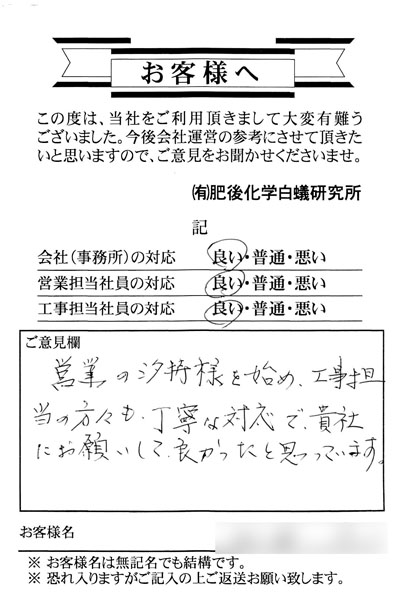 お客様へ
この度は、当社をご利用頂きまして大変有難う
ございました。今後会社運営の参考にさせて頂きた
いと思いますので、ご意見をお聞かせくださいませ。
㈲肥後化学白蟻研究所
記
会社(事務所)の対応 良い・普通・悪い
営業担当社員の対応 良い・普通・悪い
工事担当社員の対応 良い・普通・悪い
ご意見欄
営業の汐待様を始め、工事担
当の方々も、丁寧な対応で、貴社
にお願いして、良かったと思っています。
お客様名
※ お客様名は無記名でも結構です。
※ 恐れ入りますがご記入の上ご返送お願い致します。